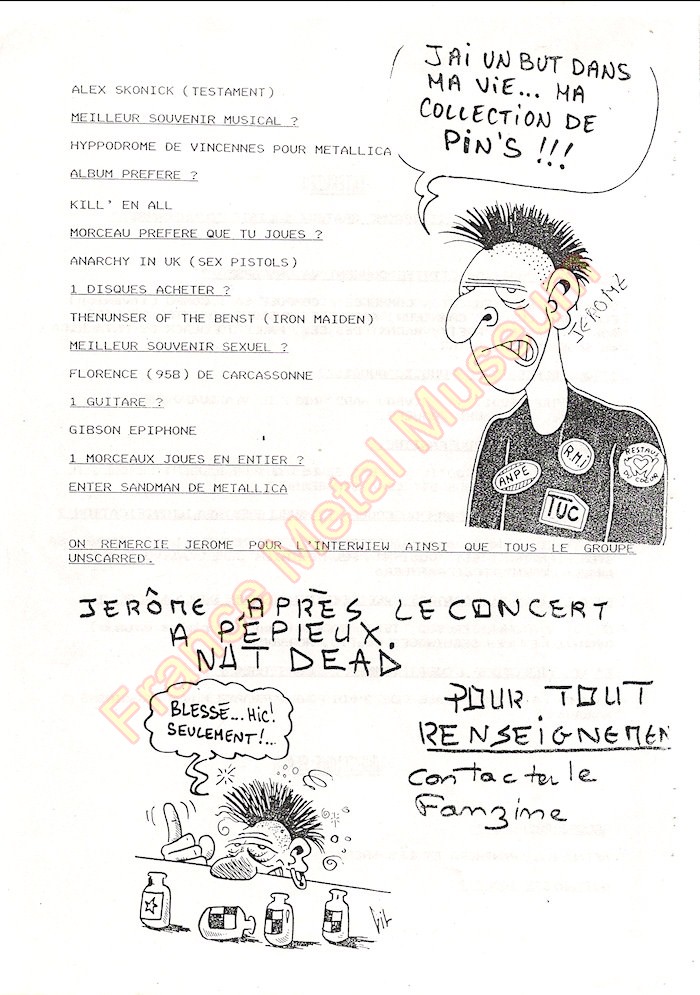 ALEX SKONICK (TESTAMENT)
MEILLEUR SOUVENIR MUSICAL ?
HYPPODROME DE VINCENNES POUR METALLICA
ALBUM PREFERE ?
KILL' EN ALL
MORCEAU PREFERE QUE TU JOUES ?
ANARCHY IN UK (SEX PISTOLS)
1 DISQUES ACHETER ?
THENUNSER OF THE BENST (IRON MAIDEN)
MEILLEUR SOUVENIR SEXUEL ?
FLORENCE (958) DE CARCASSONNE
1 GUITARE ?
GIBSON EPIPHONE
1 MORCEAUX JOUES EN ENTIER ?
ENTER SANDMAN DE METALLICA
J'AI UN BUT DANS
MA VIE... MA
COLLECTION DE
PIN'S !!!
JEROME
ANPE
R.M.I
RESTAUS
DU
COEUR
TUC
ON REMERCIE JEROME POUR L'INTERWIEW AINSI QUE TOUS LE GROUPE
UNSCARRED.
JERÔME APRÈS LE CONCERT
A PÉPIEUX.
NUT DEAD
BLESSÉ... HIC!
SEULEMENT!..
POUR TOUT
RENSEIGNEMEN
contacter le
Fanzine
France Metal Museum